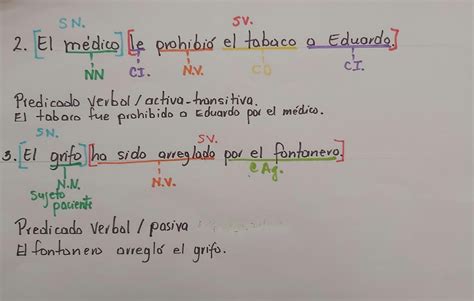 SN. SV.
2. [El médico] [le prohibió el tabaco a Eduardo.]
NN CI. N.V. CD CI.
Predicado Verbal / activa-transitiva.
El tabaco fue prohibido a Eduardo por el médico.
SN. SV.
3. [El grifo] [ha sido arreglado por el fontanero.]
N.N. N.V. C Ag.
Sujeto
paciente
Predicado Verbal / pasiva
El fontanero arregló el grifo.